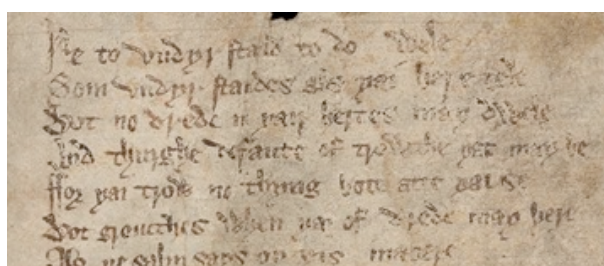 Ne to vndyr stand to do wele
Som vndyr standes als þai her rede
Bot no drede in þair hertes may dwele
And thurghe defaute of trowthe þat may be
ffor þai trow no thyng bote atte
Bot grouches when þai of drede may here
Als salm says on þis manere